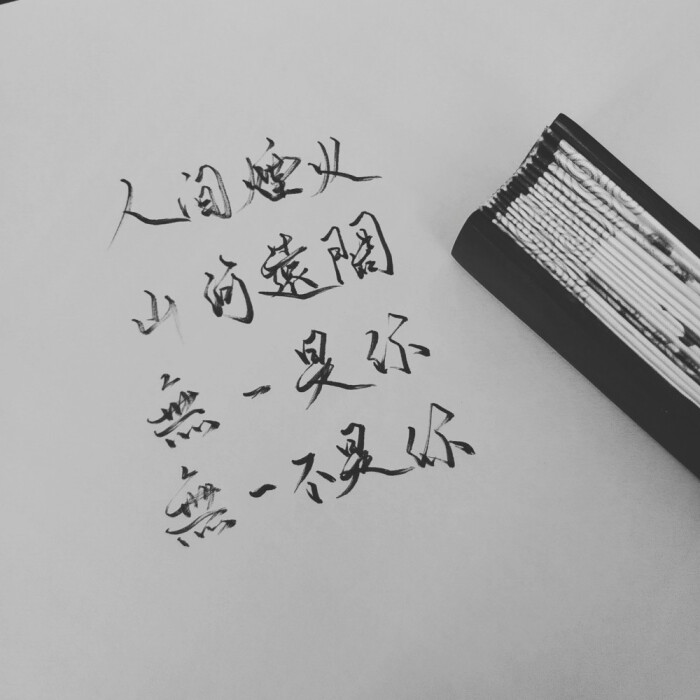 人间煙火
山河遠闊
無一是你
無一不是你